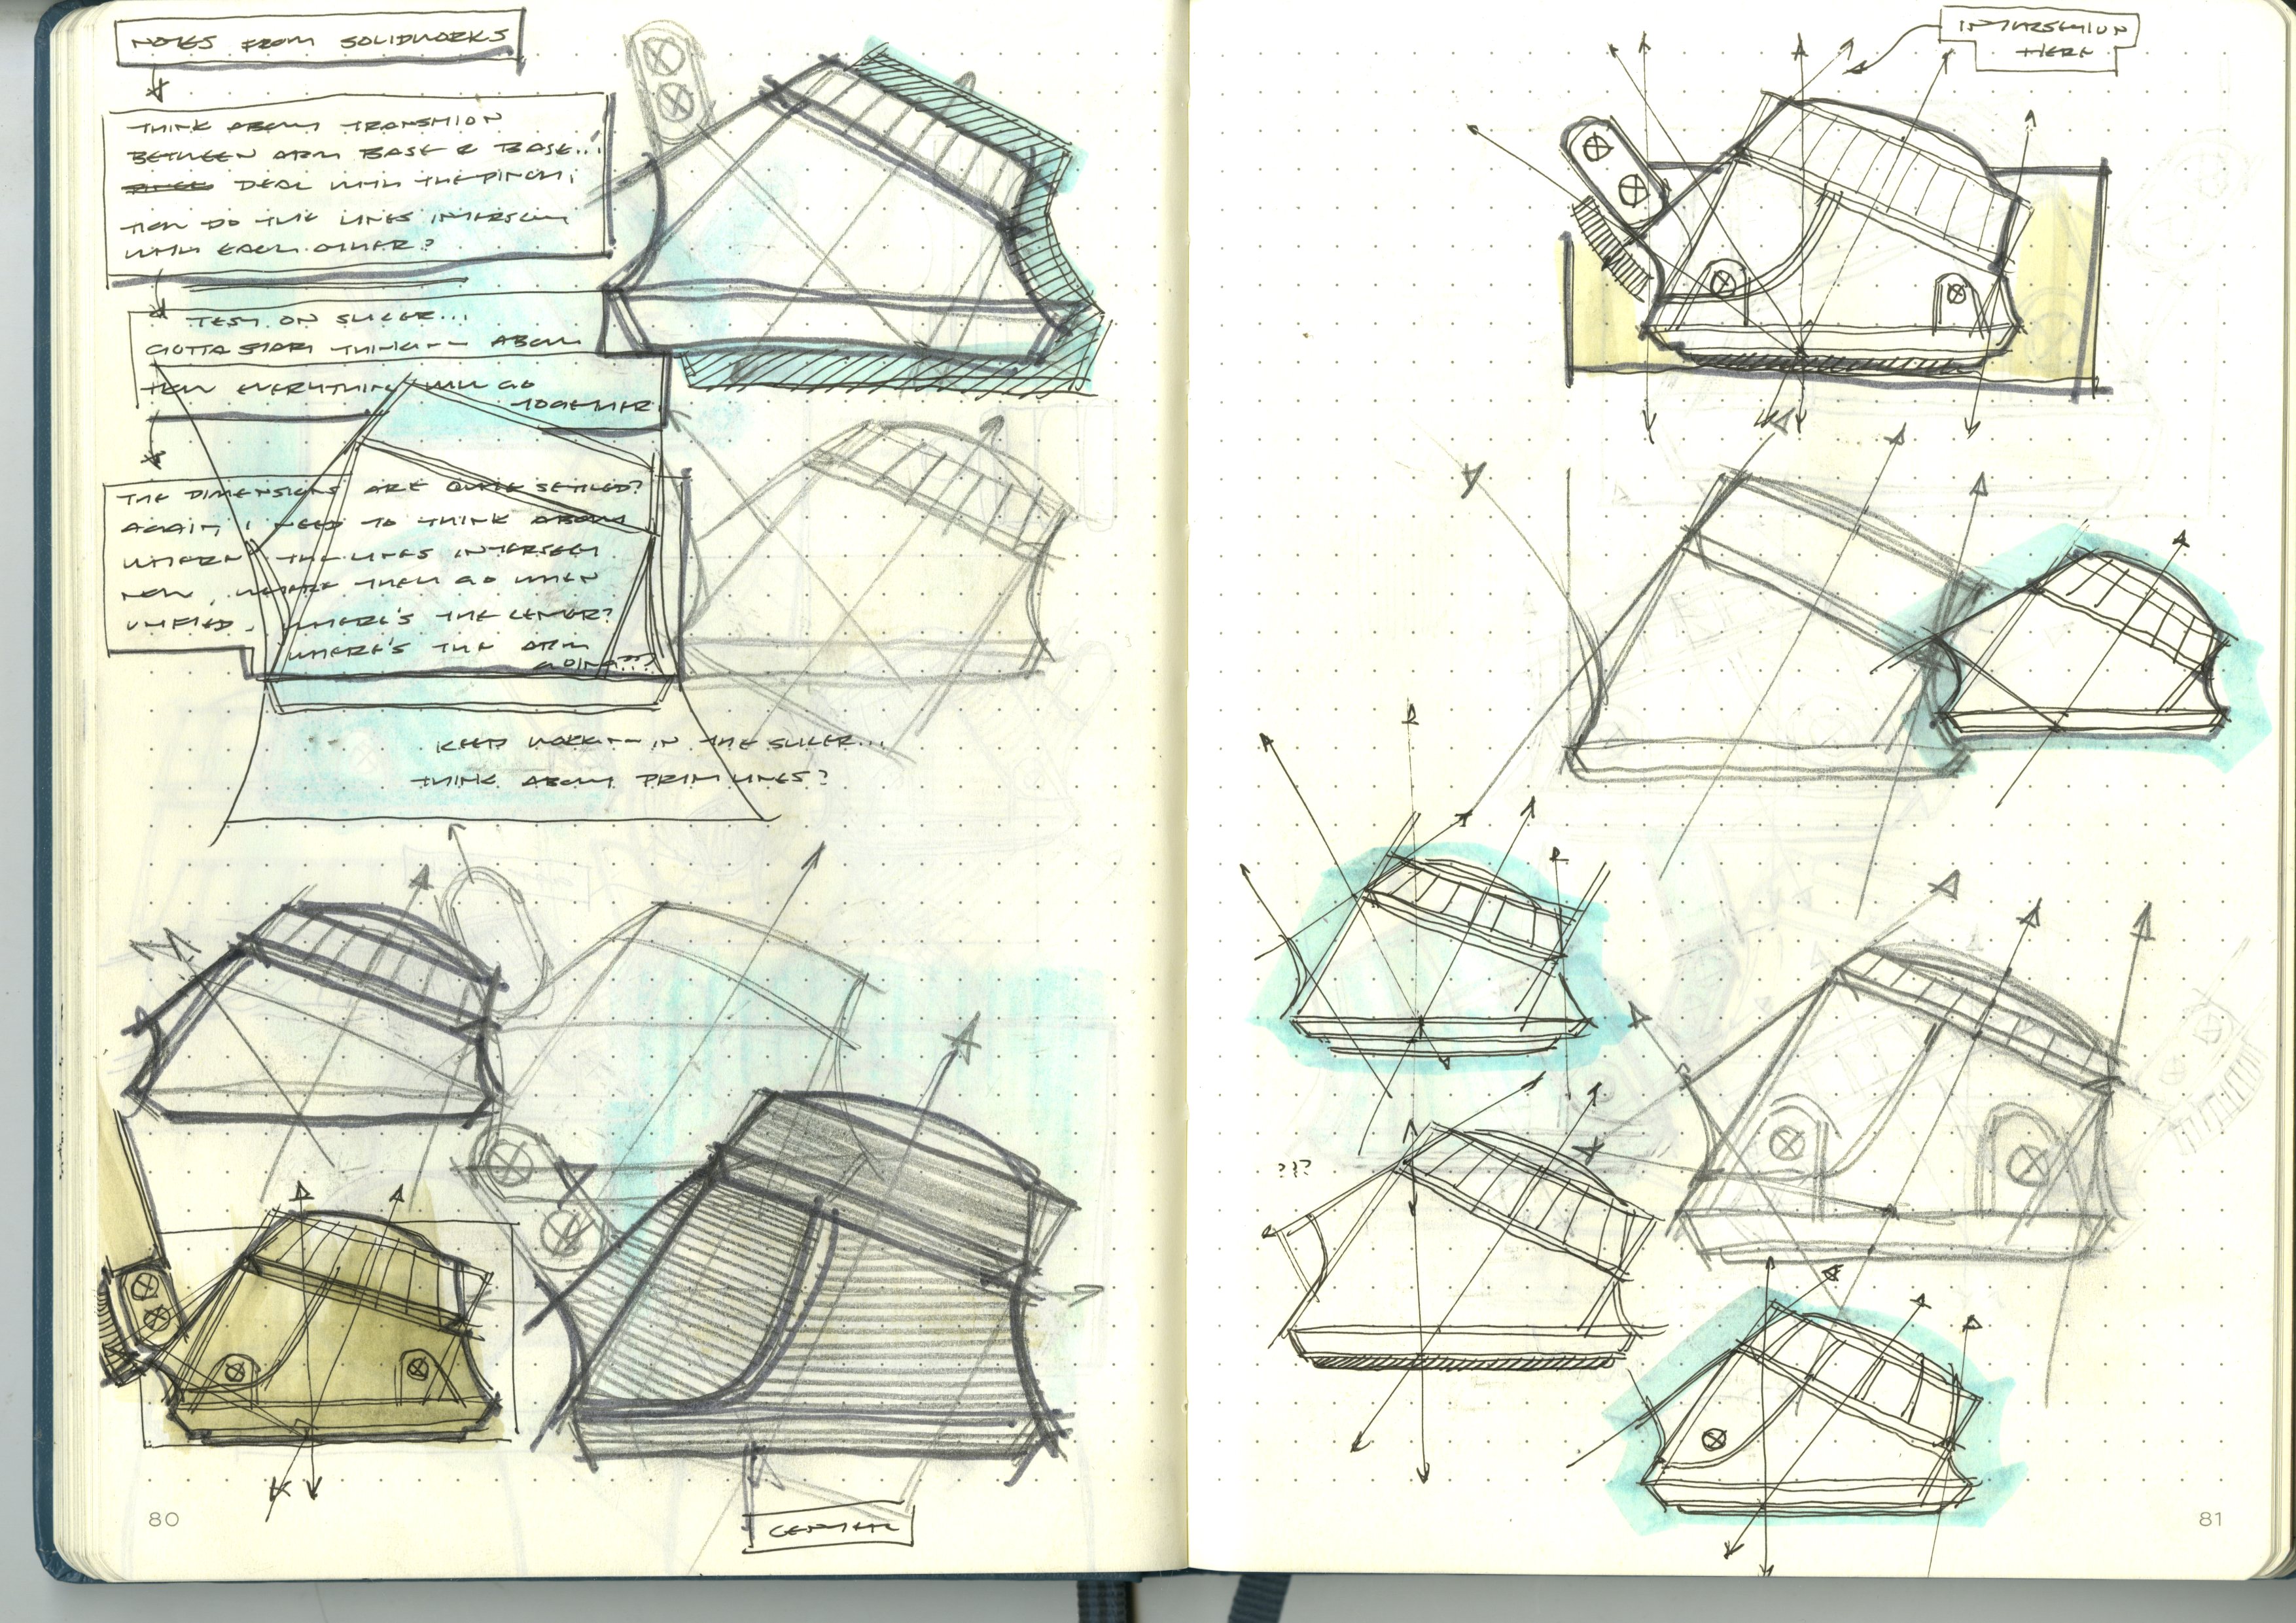 NOTES FROM SOLIDWORKS
THINK ABOUT TRANSITION
BETWEEN ARM BASE & BASE...
DEAL WITH THE PINCH.
HOW DO THE LINES INTERSECT
WITH EACH OTHER?
TEST ON SLICER...
GOTTA START THINKING ABOUT
HOW EVERYTHING WILL GO
TOGETHER
THE DIMENSIONS ARE QUITE SETTLED?
AGAIN, I NEED TO THINK ABOUT
WHERE THE LINES INTERSECT
NOW, WHERE THEY GO WHEN
UNIFIED. WHERE'S THE CENTER?
WHERE'S THE ARM
GOING???
KEEP WORKING IN THE SLICER...
THINK ABOUT PRINT LINES?
CENTER
80
INTERSECTION
HERE
???
81